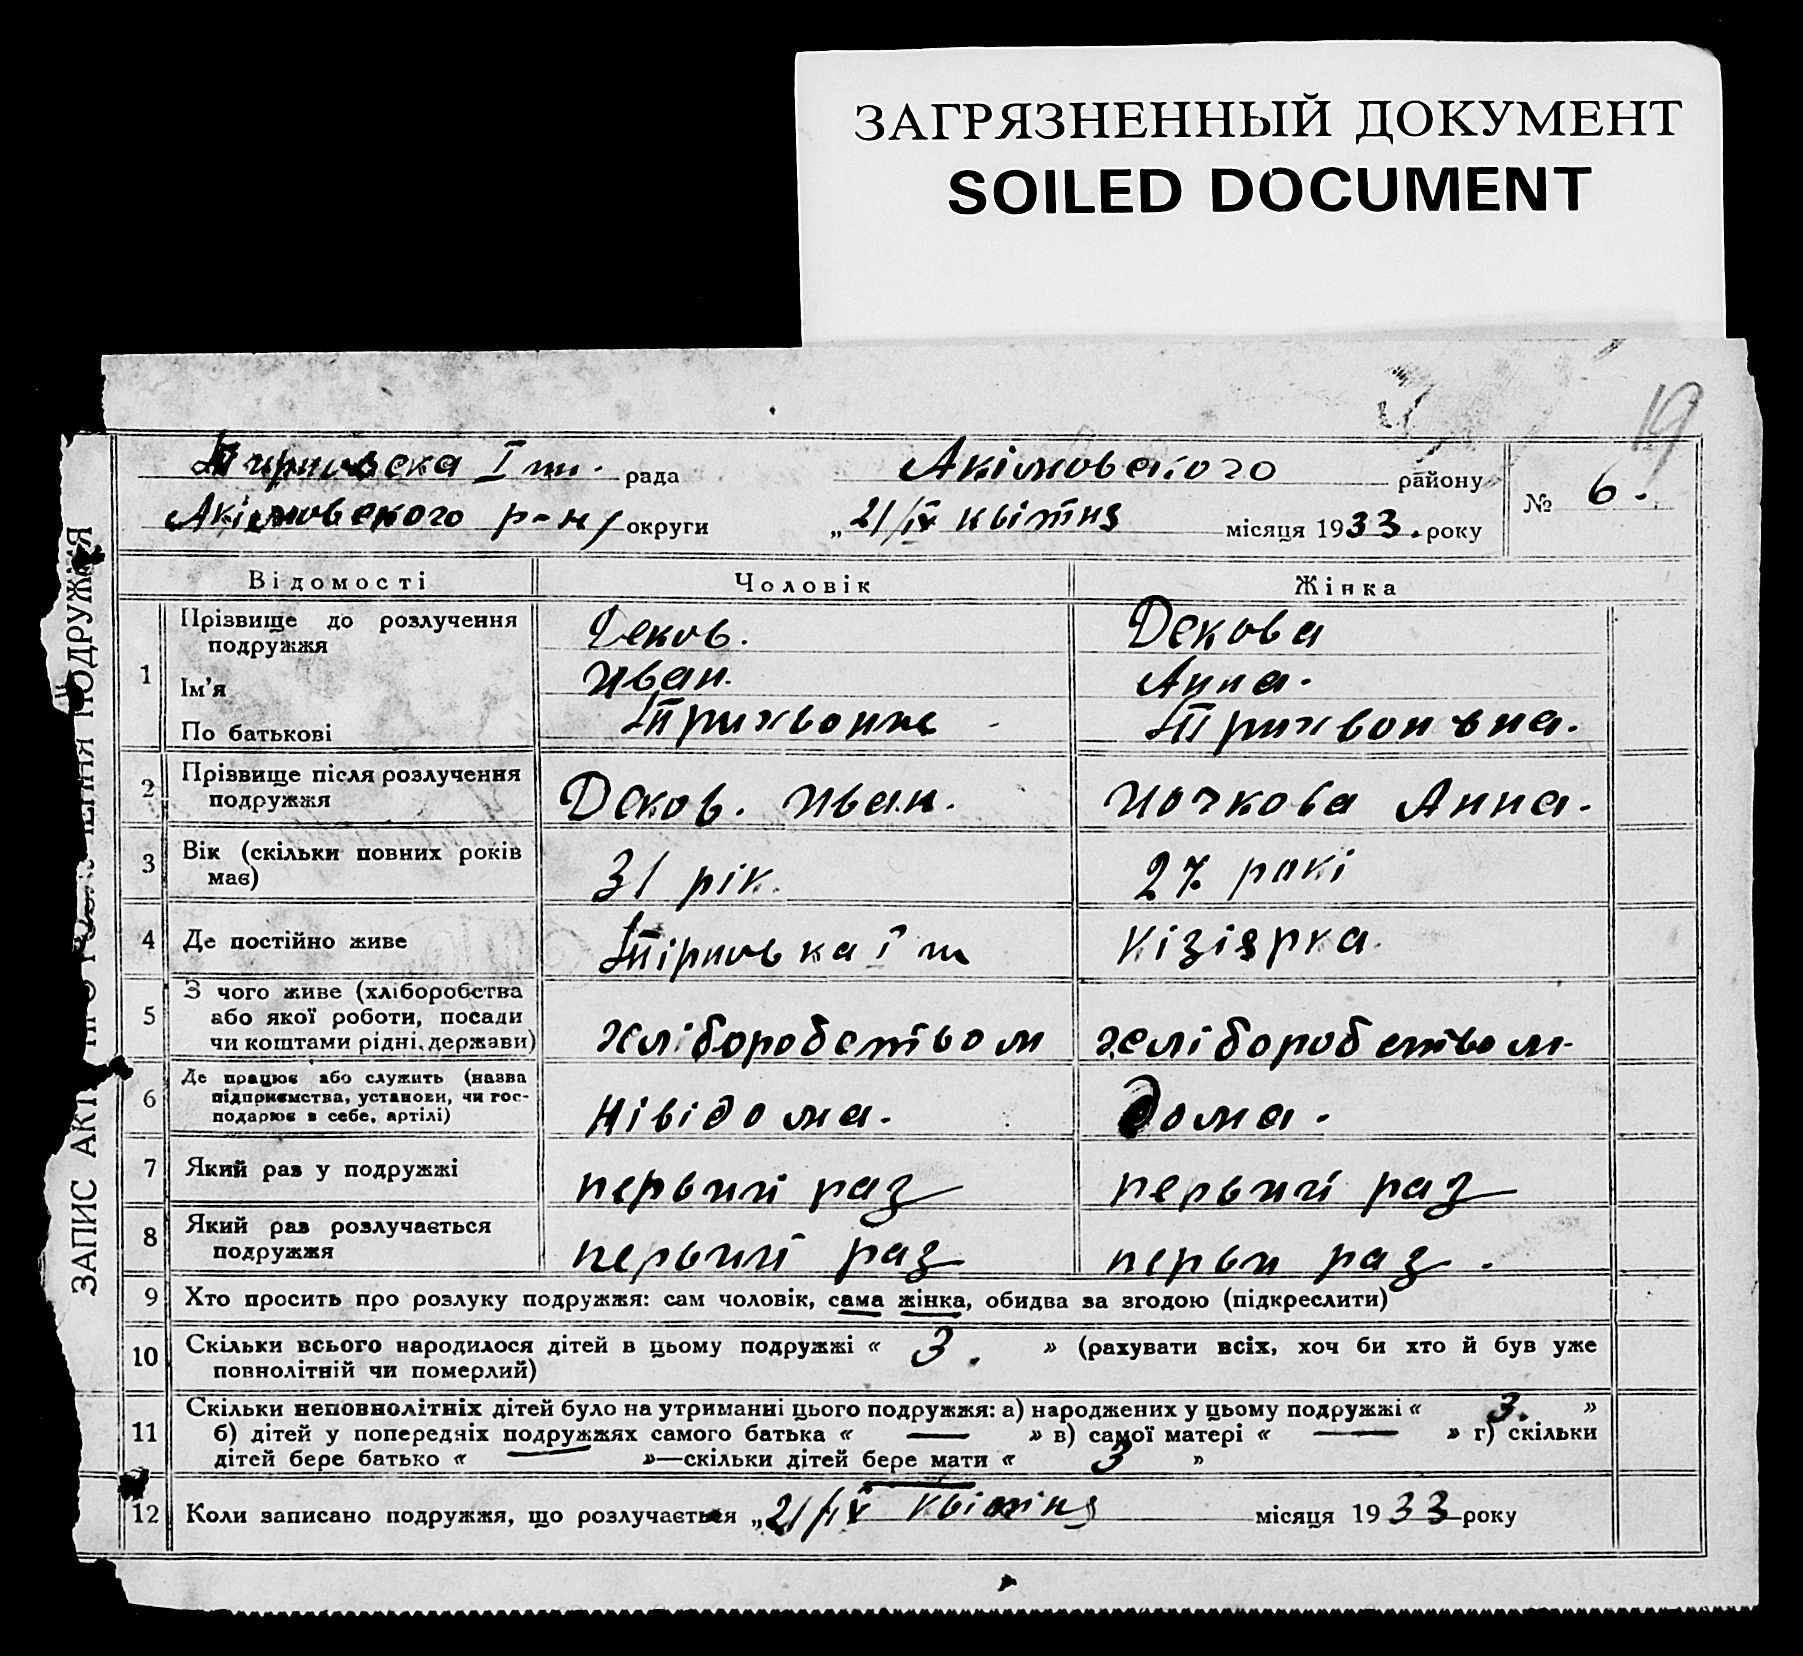 ЗАГРЯЗНЕННЫЙ ДОКУМЕНТ
SOILED DOCUMENT
19
Тирновска І ш. рада Акімовского району № 6.
Акімовского р-ну округи „21/IV квітня місяця 1933. року
ЗАПИС АКТ ПРО РОЗЛУЧЕННЯ ПОДРУЖЖЯ
Відомості Чоловік Жінка
1 Прізвище до розлучення подружжя Деков. Декова
Ім'я Иван. Анна.
По батькові Трихвонив Трихвоновна.
2 Прізвище після розлучення подружжя Деков. Иван. Ночкова Анна.
3 Вік (скільки повних років має) 31 рік. 27 рокі
4 Де постійно живе Тірновка І ш Кізіярка.
5 З чого живе (хліборобства або якої роботи, посади чи коштами рідні, держави) хліборобством хліборобством
6 Де працює або служить (назва підприємства, установи, чи господарює в себе, артілі) Нівідома. дома.
7 Який раз у подружжі первий раз первий раз
8 Який раз розлучається подружжя первий раз перви раз.
9 Хто просить про розлуку подружжя: сам чоловік, сама жінка, обидва за згодою (підкреслити)
10 Скільки всього народилося дітей в цьому подружжі « 3. » (рахувати всіх, хоч би хто й був уже
повнолітній чи померлий)
11 Скільки неповнолітніх дітей було на утриманні цього подружжя: а) народжених у цьому подружжі « 3. »
б) дітей у попередніх подружжях самого батька « — » в) самої матері « — » г) скільки
дітей бере батько « — »—скільки дітей бере мати « 3 »
12 Коли записано подружжя, що розлучається „21/IV квітня місяця 1933 року